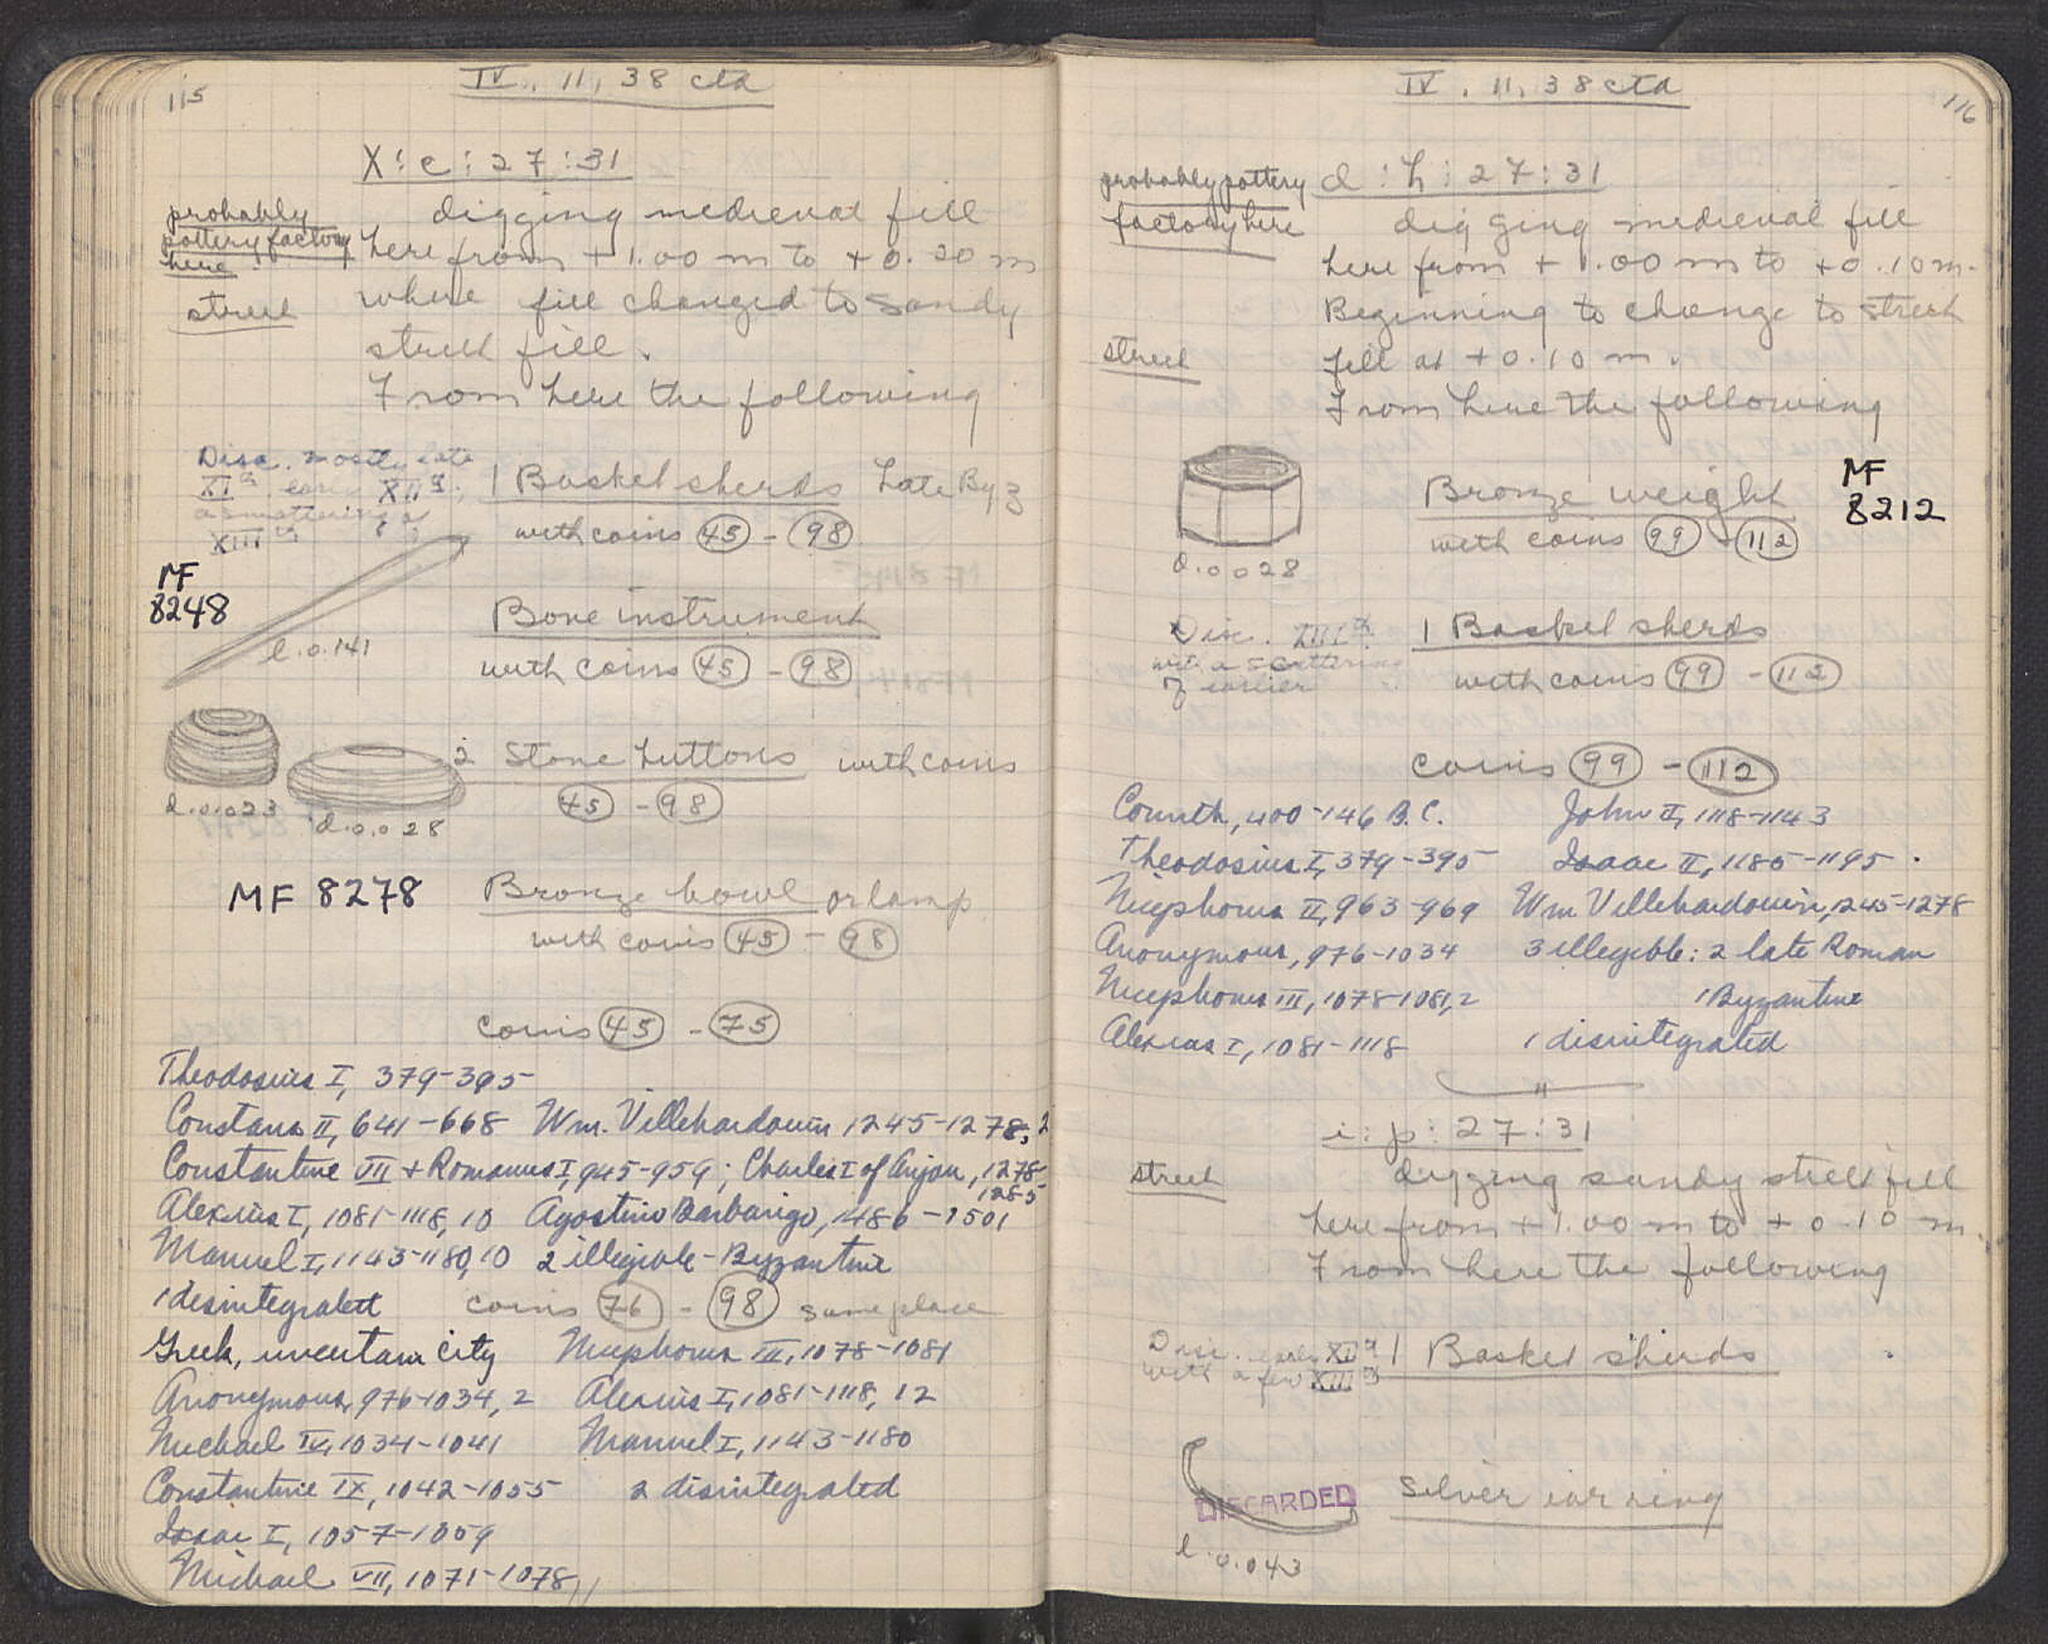 115
IV, 11, 38 ctd
X : c : 27 : 31
probably
pottery factory
here
street
digging medieval fill
here from + 1.00 m to + 0.20 m
where fill changed to sandy
street fill.
From here the following
Disc. mostly late
XIth, early XIIth;
a smattering of
XIIIth
1 Basket sherds Late Byz
with coins 45 - 98
MF
8248
l. 0.141
Bone instrument
with coins 45 - 98
2 Stone buttons with coins
45 - 98
d. 0.023
d. 0.028
MF 8278
Bronze bowl or lamp
with coins 45 - 98
coins 45 - 75
Theodosius I, 379-395
Constans II, 641-668 Wm. Villehardouin 1245-1278, 2
Constantine VII + Romanus I, 945-959; Charles I of Anjou, 1278-
1285
Alexius I, 1081-1118, 10 Agostino Barbarigo, 1486-1501
Manuel I, 1143-1180, 10 2 illegible - Byzantine
1 disintegrated coins 76 - 98 same place
Greek, uncertain city Nicephorus III, 1078-1081
Anonymous, 976-1034, 2 Alexius I, 1081-1118, 12
Michael IV, 1034-1041 Manuel I, 1143-1180
Constantine IX, 1042-1055 2 disintegrated
Isaac I, 1057-1059
Michael VII, 1071-1078
IV, 11, 38 ctd
116
d : h : 27 : 31
probably pottery
factory here
street
digging medieval fill
here from + 1.00 m to + 0.10 m.
Beginning to change to street
fill at + 0.10 m.
From here the following
d. 0.028
Bronze weight
with coins 99 - 112
MF
8212
Disc. XIIIth
with a scattering
of earlier
1 Basket sherds
with coins 99 - 112
coins 99 - 112
Corinth, 400-146 B.C. John II, 1118-1143
Theodosius I, 379-395 Isaac II, 1185-1195.
Nicephorus II, 963-969 Wm Villehardouin, 1245-1278
Anonymous, 976-1034 3 illegible: 2 late Roman
Nicephorus III, 1078-1081, 2 1 Byzantine
Alexius I, 1081-1118 1 disintegrated
i : p : 27 : 31
street
digging sandy street fill
here from + 1.00 m to + 0.10 m.
From here the following
Disc. early XIIth
with a few XIIIth
1 Basket sherds
DISCARDED
l. 0.043
Silver ear ring